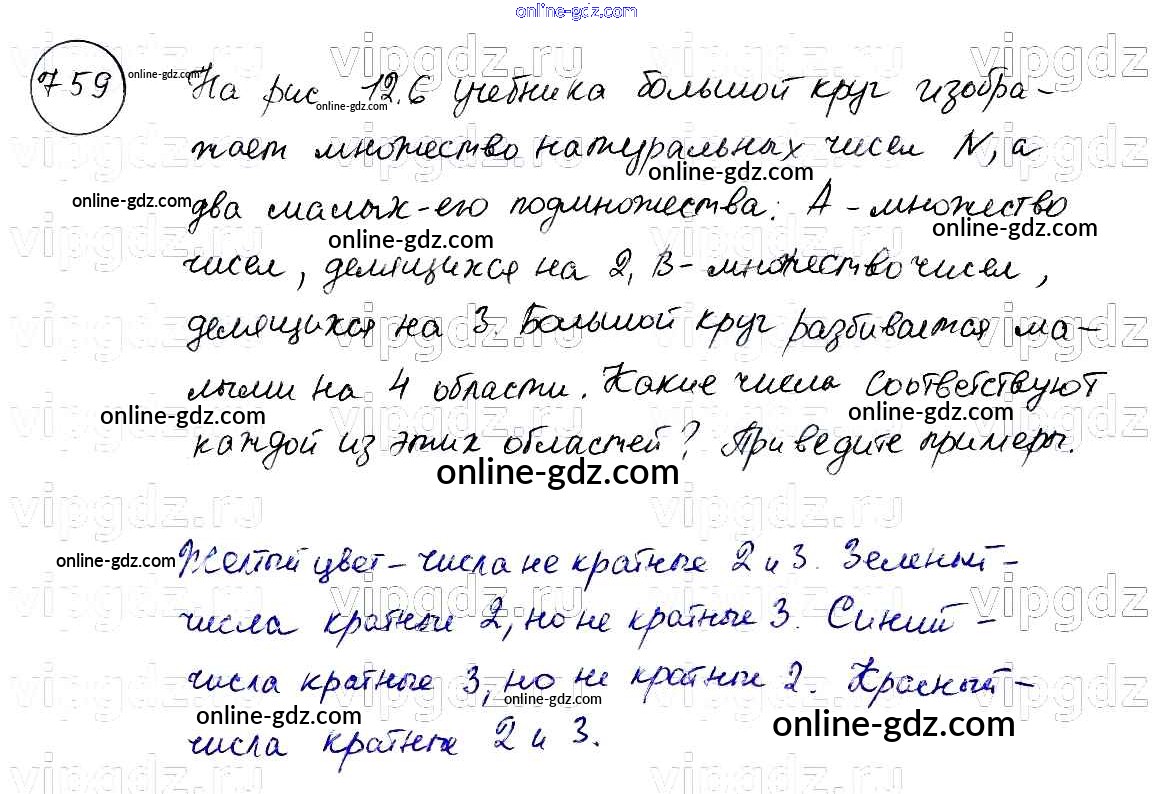 online-gdz.com
759 online-gdz.com На рис 12.6 учебника большой круг изобра-
online-gdz.com
жает множество натуральных чисел N, а
online-gdz.com
online-gdz.com два малых - его подмножества: А - множество
online-gdz.com online-gdz.com
чисел, делящихся на 2, В - множество чисел,
делящихся на 3. Большой круг разбивается ма-
лыми на 4 области. Какие числа соответствуют
online-gdz.com online-gdz.com
каждой из этих областей? Приведите примеры.
online-gdz.com
vipgdz.ru
online-gdz.com Желтый цвет - числа не кратные 2 и 3. Зеленый -
числа кратные 2, но не кратные 3. Синий -
числа кратные 3, но не кратные 2. Красный -
online-gdz.com online-gdz.com online-gdz.com
числа кратные 2 и 3.